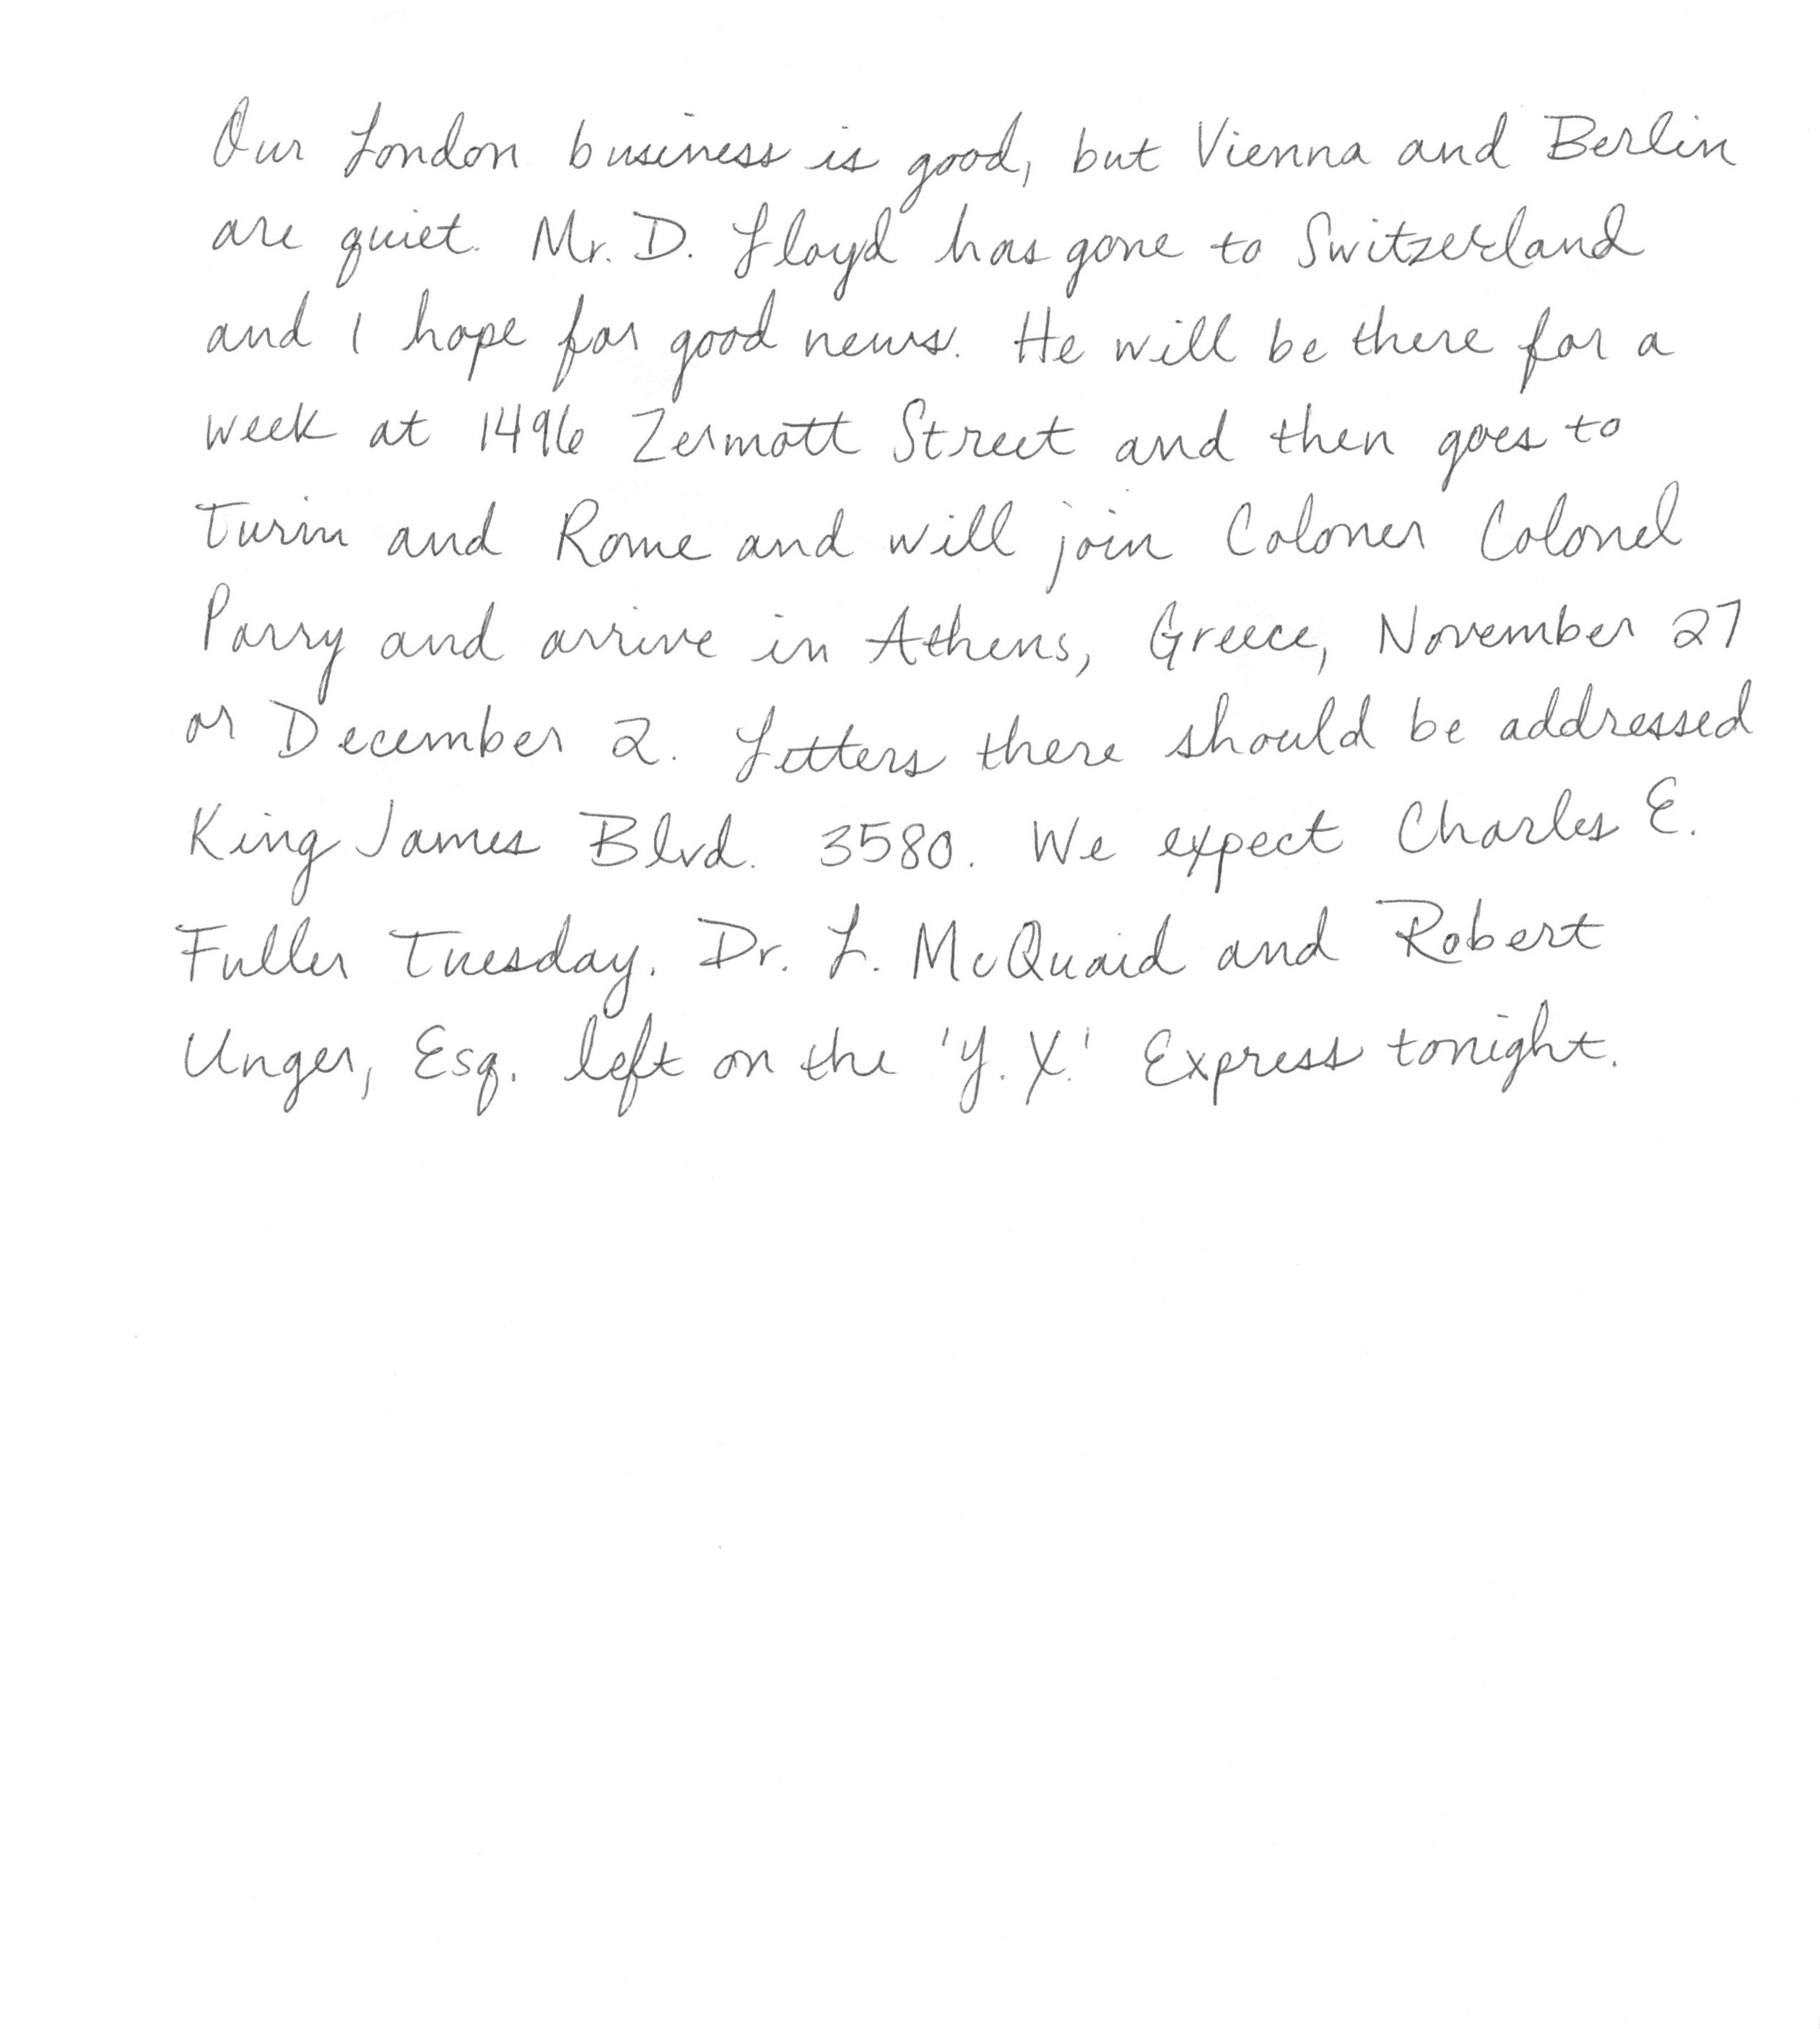 Our London business is good, but Vienna and Berlin
are quiet. Mr. D. Lloyd has gone to Switzerland
and I hope for good news. He will be there for a
week at 1496 Zermott Street and then goes to
Turin and Rome and will join Coloner Colonel
Parry and arrive in Athens, Greece, November 27
or December 2. Letters there should be addressed
King James Blvd. 3580. We expect Charles E.
Fuller Tuesday. Dr. L. McQuaid and Robert
Unger, Esq. left on the 'Y.X.' Express tonight.